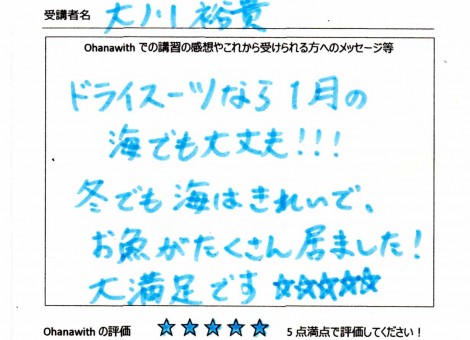 受講者名 大川 裕貴
Ohanawith での講習の感想やこれから受けられる方へのメッセージ等
ドライスーツなら1月の
海でも大丈夫!!!
冬でも海はきれいで、
お魚がたくさん居ました!
大満足です ☆☆☆☆☆
Ohanawith の評価 ☆☆☆☆☆ 5点満点で評価してください!